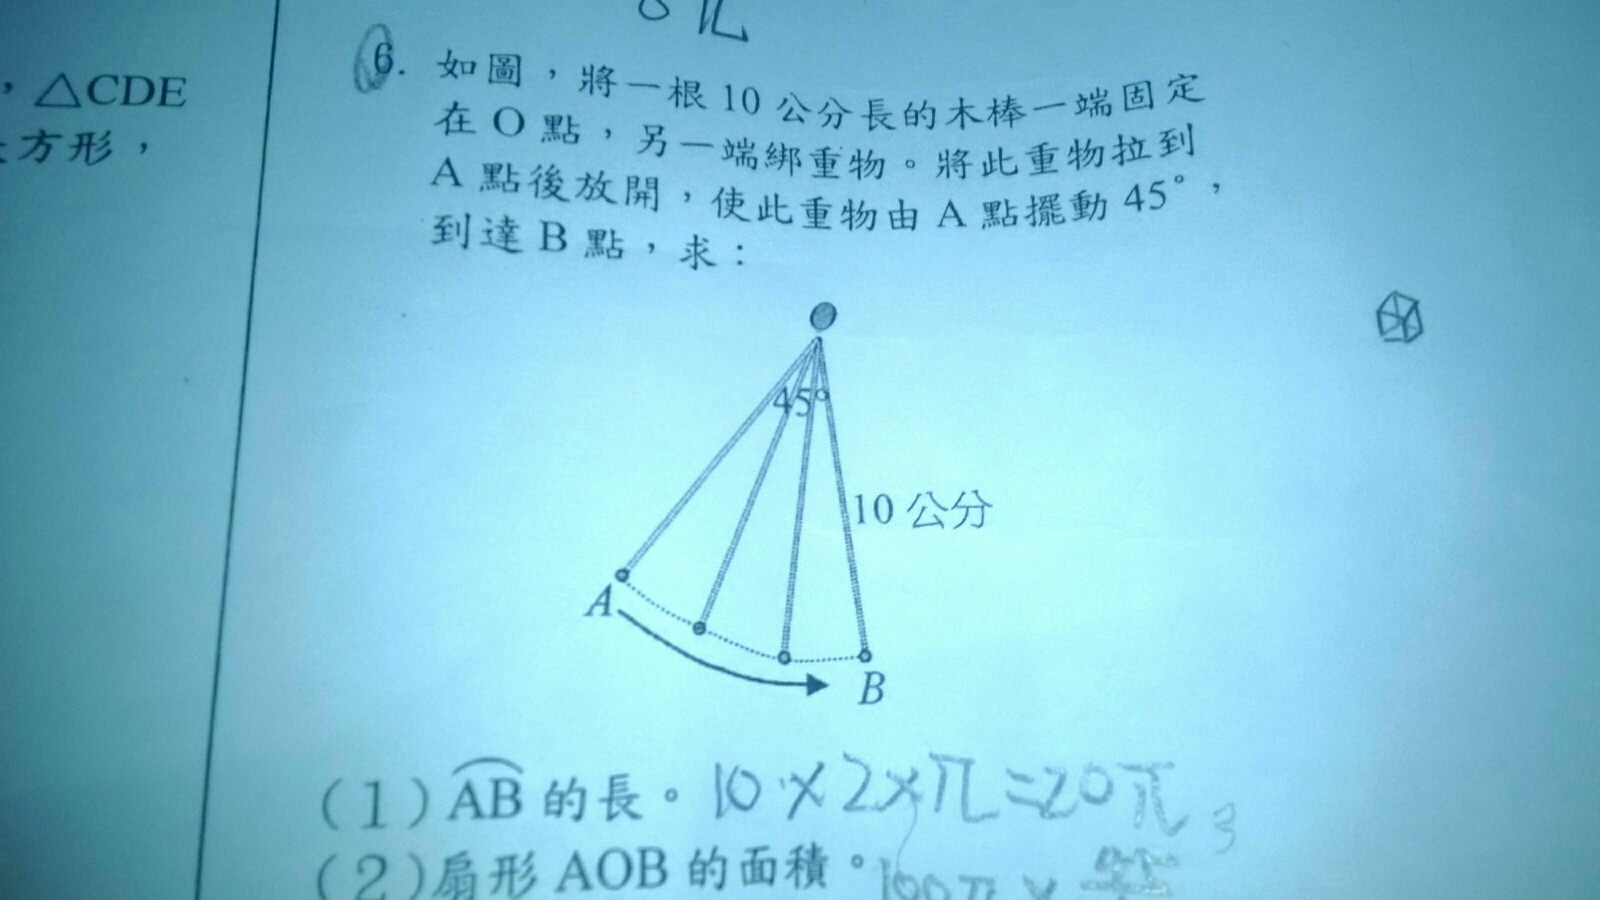 8π
，△CDE
方形，
6. 如圖，將一根 10 公分長的木棒一端固定
在 O 點，另一端綁重物。將此重物拉到
A 點後放開，使此重物由 A 點擺動 45°，
到達 B 點，求：
O
45°
10 公分
A
B
(1) AB 的長。 10×2×π=20π
(2) 扇形 AOB 的面積。 100π×